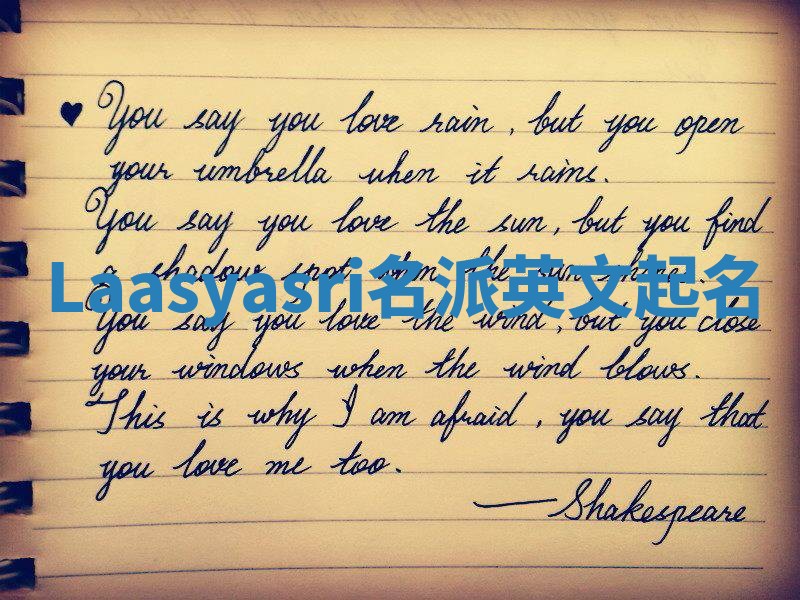 ♥ You say you love rain, but you open
your umbrella when it rains.
You say you love the sun, but you find
a shadow spot when the sun shines.
Laasyasri名派英文起名
You say you love the wind, but you close
your windows when the wind blows.
This is why I am afraid, you say that
you love me too.
—Shakespeare